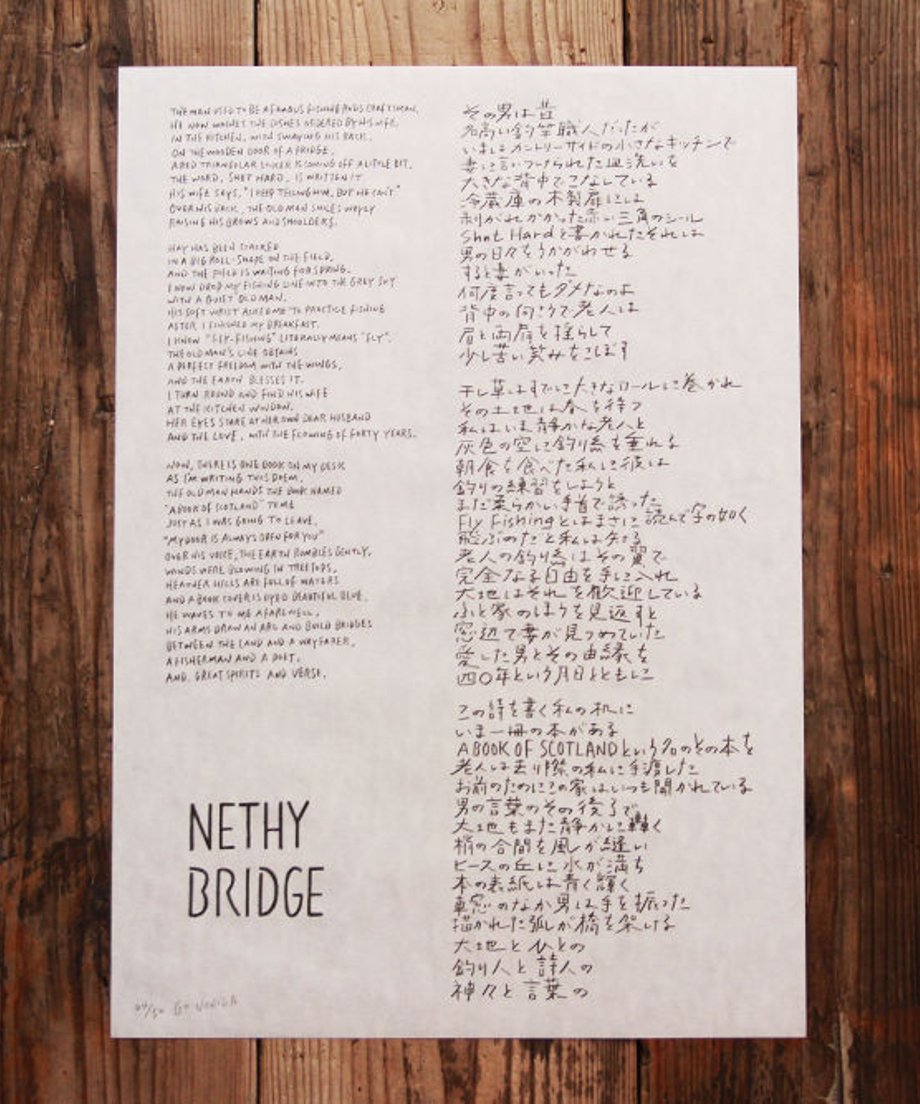 THE MAN USED TO BE A FAMOUS FISHING RODS CRAFTSMAN.
HE NOW WASHES THE DISHES ORDERED BY HIS WIFE,
IN THE KITCHEN, WITH SWAYING HIS BACK.
ON THE WOODEN DOOR OF A FRIDGE,
A RED TRIANGULAR STICKER IS COMING OFF A LITTLE BIT.
THE WORD, SHOT HARD, IS WRITTEN IT
HIS WIFE SAYS, "I KEEP TELLING HIM, BUT HE CAN'T"
OVER HIS BACK, THE OLD MAN SMILES WRYLY
RAISING HIS BROWS AND SHOULDERS.
HAY HAS BEEN STACKED
IN A BIG ROLL-SHAPE ON THE FIELD,
AND THE FIELD IS WAITING FOR SPRING.
I NOW DROP MY FISHING LINE INTO THE GREY SKY
WITH A QUIET OLD MAN.
HIS SOFT WRIST ASKED ME TO PRACTICE FISHING
AFTER I FINISHED MY BREAKFAST.
I KNOW "FLY-FISHING" LITERALLY MEANS "FLY".
THE OLD MAN'S LINE OBTAINS
A PERFECT FREEDOM WITH THE WINGS,
AND THE EARTH BLESSES IT.
I TURN ROUND AND FIND HIS WIFE
AT THE KITCHEN WINDOW.
HER EYES STARE AT HER OWN DEAR HUSBAND
AND THE LOVE, WITH THE FLOWING OF FORTY YEARS.
NOW, THERE IS ONE BOOK ON MY DESK
AS I'M WRITING THIS POEM.
THE OLD MAN HANDS THE BOOK NAMED
"A BOOK OF SCOTLAND" TO ME
JUST AS I WAS GOING TO LEAVE.
"MY DOOR IS ALWAYS OPEN FOR YOU"
OVER HIS VOICE, THE EARTH RUMBLES GENTLY,
WINDS WERE BLOWING IN TREETOPS,
HEATHER HILLS ARE FULL OF WATERS
AND A BOOK COVER IS DYED BEAUTIFUL BLUE.
HE WAVES TO ME A FAREWELL,
HIS ARMS DRAW AN ARC AND BUILD BRIDGES
BETWEEN THE LAND AND A WAYFARER,
A FISHERMAN AND A POET,
AND GREAT SPIRITS AND VERSE.
NETHY
BRIDGE
その男は昔
名高い釣竿職人だったが
いまはカントリーサイドの小さなキッチンで
妻に言いつけられた皿洗いを
大きな背中でこなしている
冷蔵庫の木製扉には
剥がれかかった赤い三角のシール
Shot Hardと書かれたそれは
男の日々をうかがわせる
すると妻がいった
何度言ってもダメなのよ
背中の向こうで老人は
眉と両肩を揺らして
少し苦い笑みをこぼす
干し草はすでに大きなロールに巻かれ
その土地は春を待つ
私はいま静かな老人と
灰色の空に釣り糸を垂れる
朝食を食べた私に彼は
釣りの練習をしようと
まだ柔らかい手首で誘った
Fly Fishingとはまさに読んで字の如く
飛ぶのだと私は知る
老人の釣り糸はその翼で
完全なる自由を手に入れ
大地はそれを歓迎している
ふと家のほうを見返すと
窓辺で妻が見つめていた
愛した男とその由縁を
四〇年という月日とともに
この詩を書く私の机に
いま一冊の本がある
A BOOK OF SCOTLANDという名のその本を
老人は去り際の私に手渡した
お前のためにこの家はいつも開かれている
男の言葉のその後ろで
大地もまた静かに轟く
梢の合間を風が縫い
ヒースの丘に水が満ち
本の表紙は青く輝く
車窓のなか男は手を振った
描かれた弧が橋を架ける
大地とひとの
釣り人と詩人の
神々と言葉の